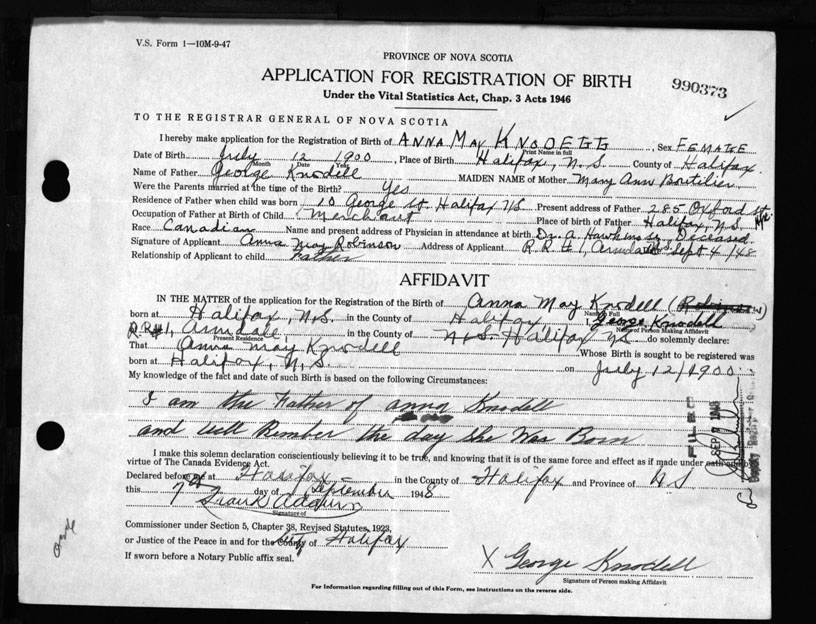 V.S. Form 1—10M-9-47
PROVINCE OF NOVA SCOTIA
APPLICATION FOR REGISTRATION OF BIRTH
990373
Under the Vital Statistics Act, Chap. 3 Acts 1946
TO THE REGISTRAR GENERAL OF NOVA SCOTIA
I hereby make application for the Registration of Birth of ANNA MAY KNODELL, Sex FEMALE
Print Name in full
Date of Birth July 12 1900, Place of Birth Halifax, N.S. County of Halifax.
Month Date Year
Name of Father George Knodell MAIDEN NAME of Mother Mary Ann Boutilier
Were the Parents married at the time of the Birth? Yes
Residence of Father when child was born 10 George St. Halifax NS Present address of Father 285 Oxford St.
Occupation of Father at Birth of Child Merchant Place of birth of Father Halifax, N.S.
Race Canadian Name and present address of Physician in attendance at birth Dr. A. Hawkins Deceased.
Signature of Applicant Anna May Robinson Address of Applicant R.R #1, Armdale Sept 4/48
Relationship of Applicant to child Father
AFFIDAVIT
IN THE MATTER of the application for the Registration of the Birth of Anna May Knodell (Robinson)
Name in Full
born at Halifax, N.S. in the County of Halifax I, George Knodell
Name of Person Making Affidavit
R.R #1, Armdale, in the County of N.S. Halifax NS do solemnly declare:
Present Residence
That Anna May Knodell Whose Birth is sought to be registered was
born at Halifax, N.S. on July 12/1900
My knowledge of the fact and date of such Birth is based on the following Circumstances:
I am the Father of Anna Knodell
and will Rember the day she was Born
I make this solemn declaration conscientiously believing it to be true, and knowing that it is of the same force and effect as if made under oath
virtue of The Canada Evidence Act.
Declared before me at Halifax in the County of Halifax and Province of N.S.
this 7th day of September 1948
Signature of
Commissioner under Section 5, Chapter 38, Revised Statutes, 1923,
or Justice of the Peace in and for the City of Halifax
If sworn before a Notary Public affix seal.
X George Knodell
Signature of Person making Affidavit
For Information regarding filling out of this Form, see instructions on the reverse side.
FILED
SEP 7 1948